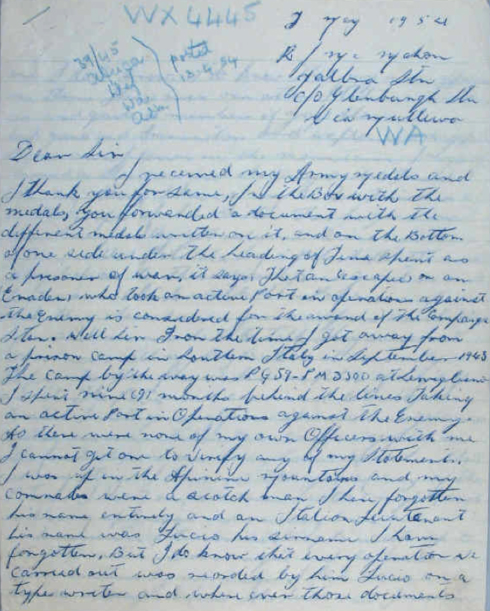 WX4445
39/45
Africa
Def
War
Aus
posted
13.4.54
1954
R J Mc Mahon
Dalbra Stn
C/O Glenburgh Stn
WA
Dear Sir,
I received my Army Medels and
I thank you for same, In the Box with the
medals, you forwarded a document with the
different medals written on it, and on the Bottom
of one side under the heading of Time spent as
a prisoner of war, it says That an escapee or an
Evader, who took an active Part in operations against
the Enemy is considered for the award of the Campaign
Star. Well Sir From the time I got away from
a prison camp in Southern Italy in September 1943
The camp by the way was PG 59 - P.M 3300 at
I spent nine (9) months behind the lines Taking
an active Part in Operations against the Enemy.
As there were none of my own Officers with me
I cannot get one to verify any of my Statements.
I was up in the Apinine Mountains and my
comrades were a scotch man I have forgotten
his name entirely and an Italian Lieutenant
his name was Lucio his sirname I have
forgotten, But I do know that every operation we
carried out was recorded by him Lucio on a
type writer and where ever those documents